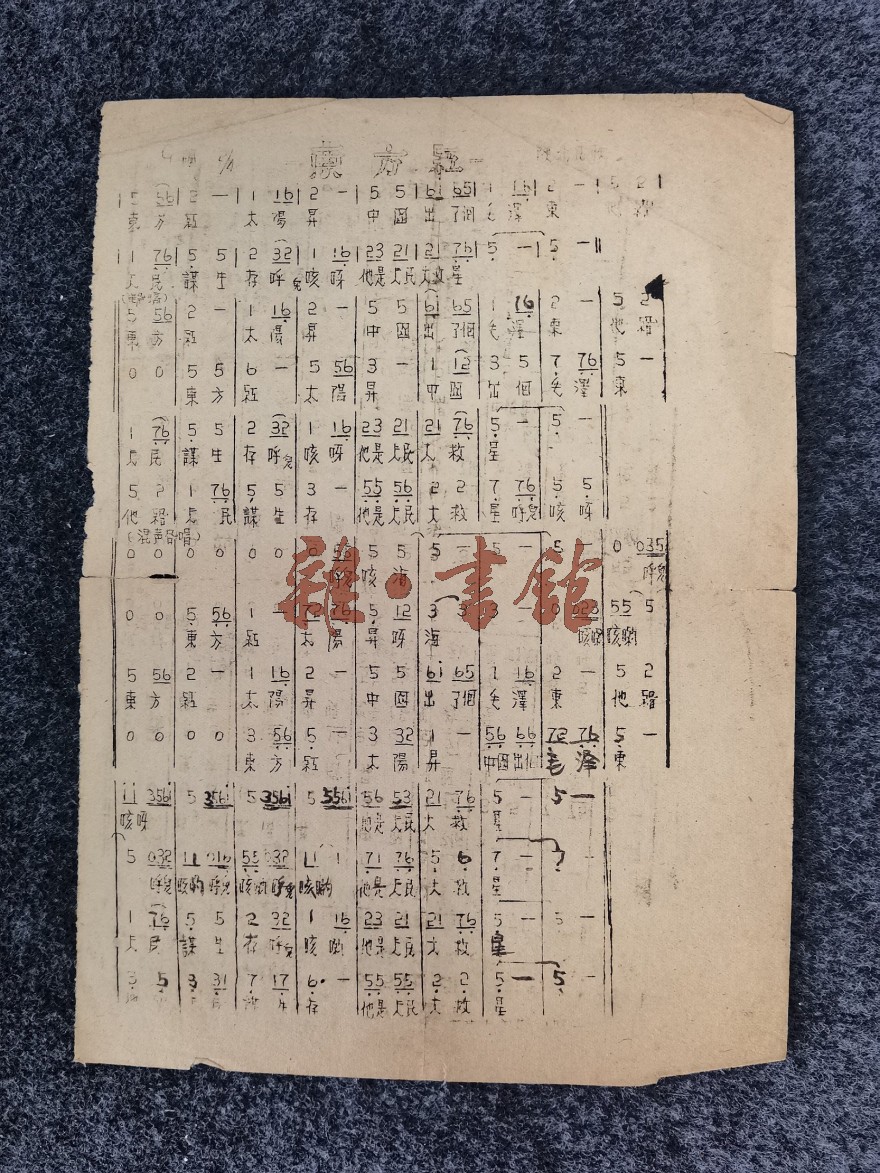 東方紅
| 5 56 | 2 — | 1 16 | 2 — | 5 5 | 61 65 | 1 16 | 2 — | 5 2 |
東方 紅 太陽 昇 中國 出了個 毛澤 東 他
| 1 76 | 5 5 | 2 32 | 1 16 | 23 21 | 21 76 | 5 — | 5 — ||
民 謀生 存呼兒 咳呀 他是人民 大救 星
5 56 | 2 — | 1 16 | 2 — | 5 5 | 61 65 | 1 76 | 2 — | 5 2
東方 紅 太陽 昇 中國 出了個 毛澤 東 他
0 0 | 5 5 | 6 — | 5 56 | 3 — | 1 12 | 3 5 | 7 76 | 5 —
東方 紅 太陽 昇 中國 出個 毛澤 東
1 76 | 5 5 | 2 32 | 1 16 | 23 21 | 21 76 | 5 — | 5 —
人民 謀生 存呼兒 咳呀 他是人民 大救 星
5 2 | 1 76 | 5 5 | 3 — | 55 56 | 2 2 | 7 76 | 5 5
他 人民 謀生 存 他是人民 大救 星呼兒 咳呀
(混声合唱)
0 0 | 0 0 | 0 0 | 0 53 | 5 5 | 5 — | 5 — | 5 — | 0 035
呼兒 咳 呼兒
0 0 | 5 56 | 1 — | 72 76 | 5 12 | 3 3 | 3 — | 0 023 | 55 5
東方 紅 太陽 昇呀 海 咳喲 咳喲
5 56 | 2 — | 1 16 | 2 — | 5 5 | 61 65 | 1 16 | 2 — | 5 2
東方 紅 太陽 昇 中國 出了個 毛澤 東 他
0 0 | 0 0 | 3 56 | 5 — | 3 32 | 1 — | 56 66 | 72 76 | 5 —
東方 紅 太陽 昇 中國出個 毛澤 東
11 3561 | 5 3561 | 5 3561 | 5 5561 | 56 53 | 21 76 | 5 — | 5 —
咳呀 他是人民 大救 星
5 032 | 11 016 | 55 032 | 11 1 | 71 76 | 5 6 | 7 — | 7 —
呼兒 咳喲 呼兒 咳喲 呼兒 咳喲 他是人民 大救 星
1 76 | 5 5 | 2 32 | 1 16 | 23 21 | 21 76 | 5 — | 5 —
人民 謀生 存呼兒 咳喲 他是人民 大救 星
3 5 | 3 31 | 7 17 | 6 — | 55 55 | 2 2 | 5 — | 5 —
存 他是人民 大救 星
雜·書館